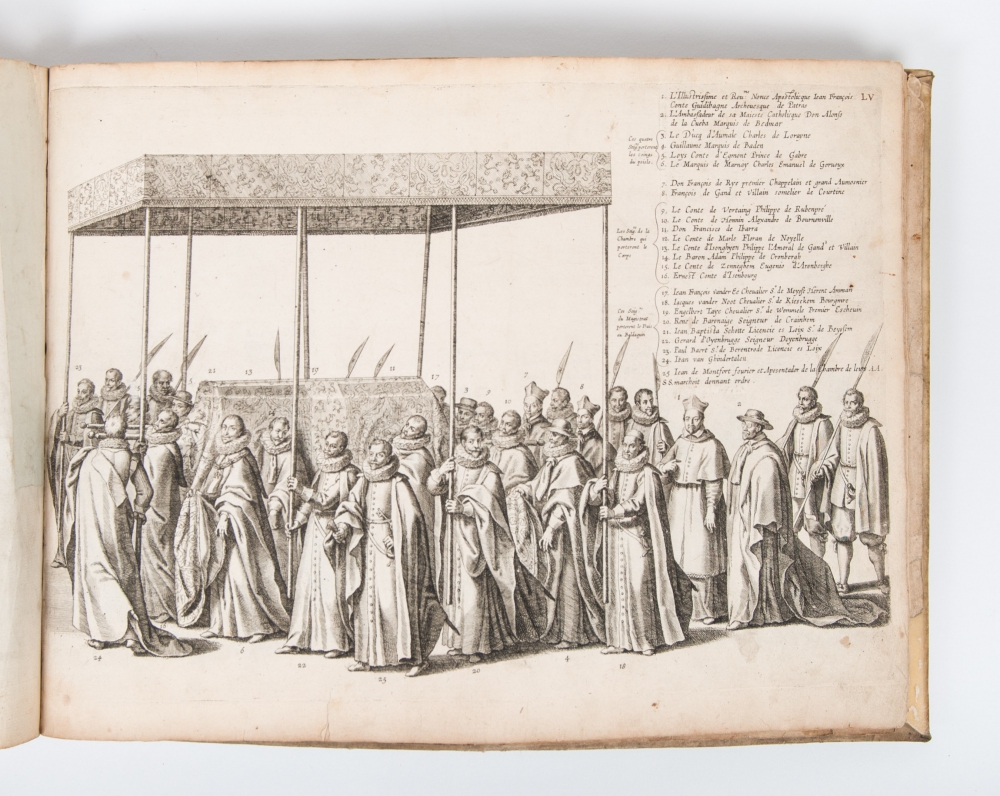 LV
1. L'Illustrissime et Reu.^me Nonce Apostolicque Iean François
Conte Guidibagne Archeuesque de Patras
2. L'Ambassadeur de sa Maiesté Catholicque Don Alonse
de la Cueba Marquis de Bedmar
3. Le Ducq d'Aumale Charles de Lorayne
4. Guillaume Marquis de Baden
5. Loys Conte d'Egmont Prince de Gabre
6. Le Marquis de Marnay Charles Emanuel de Gorevox
7. Don François de Rye premier Chappelain et grand Aumosnier
8. François de Gand et Villain somelier de Courtine
9. Le Conte de Vertaing Philippe de Rubenpré
10. Le Conte de Hennin Alexandre de Bournonville
11. Don Francisco de Ibarra
12. Le Conte de Marle Floran de Noyelle
13. Le Conte d'Isenghyen Philippe l'Amoral de Gand et Villain
14. Le Baron Adam Philippe de Cronbergh
15. Le Conte de Zenneghem Eugenio d'Arenberghe
16. Ernest Conte d'Isenbourg
17. Iean François vander Ee Cheualier S.^r de Meyse Amman
18. Iacques vander Noot Cheualier S.^r de Kiesekem Bourgmre
19. Engelbert Taye Cheualier S.^r de Wemmele Premier Escheuin
20. René de Barenaige Seigneur de Crainhem
21. Iean Baptista Schotte Licencie es Loix S.^r de
22. Gerard d'Oyenbrugge Seigneur Doyenbrugge
23. Paul Baert S.^r de Berentrode Licencie es Loix
24. Iean van Ghindertalen
25 Iean de Montfort fourier et Aposentador de la Chambre de leurs A.A.
S S marchoit donnant ordre.
Ces quatre
portoient
les
du poisle.
Les
Chambre qui
portoient le
Corps
Ces
du Magistrat
portoient le
ou Baldaquin
23
5
21
13
19
11
17
3
9
10
7
8
1
2
24
6
22
25
20
4
18